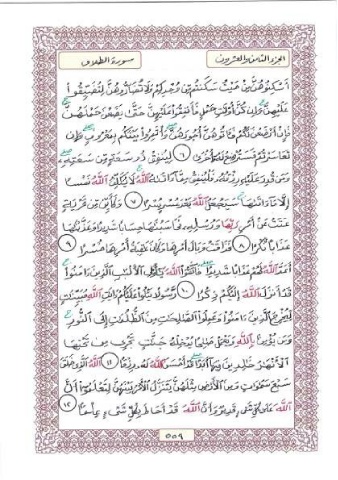 سورة الطلاق
الجزء الثامن والعشرون
أَسْكِنُوهُنَّ مِنْ حَيْثُ سَكَنتُم مِّن وُجْدِكُمْ وَلَا تُضَآرُّوهُنَّ لِتُضَيِّقُوا۟
عَلَيْهِنَّ وَإِن كُنَّ أُو۟لَـٰتِ حَمْلٍ فَأَنفِقُوا۟ عَلَيْهِنَّ حَتَّىٰ يَضَعْنَ حَمْلَهُنَّ
فَإِنْ أَرْضَعْنَ لَكُمْ فَـَٔاتُوهُنَّ أُجُورَهُنَّ وَأْتَمِرُوا۟ بَيْنَكُم بِمَعْرُوفٍ وَإِن
تَعَاسَرْتُمْ فَسَتُرْضِعُ لَهُۥٓ أُخْرَىٰ ٦ لِيُنفِقْ ذُو سَعَةٍ مِّن سَعَتِهِۦ
وَمَن قُدِرَ عَلَيْهِ رِزْقُهُۥ فَلْيُنفِقْ مِمَّآ ءَاتَىٰهُ ٱللَّهُ لَا يُكَلِّفُ ٱللَّهُ نَفْسًا
إِلَّا مَآ ءَاتَىٰهَا سَيَجْعَلُ ٱللَّهُ بَعْدَ عُسْرٍ يُسْرًا ٧ وَكَأَيِّن مِّن قَرْيَةٍ
عَتَتْ عَنْ أَمْرِ رَبِّهَا وَرُسُلِهِۦ فَحَاسَبْنَـٰهَا حِسَابًا شَدِيدًا وَعَذَّبْنَـٰهَا
عَذَابًا نُّكْرًا ٨ فَذَاقَتْ وَبَالَ أَمْرِهَا وَكَانَ عَـٰقِبَةُ أَمْرِهَا خُسْرًا ٩
أَعَدَّ ٱللَّهُ لَهُمْ عَذَابًا شَدِيدًا فَٱتَّقُوا۟ ٱللَّهَ يَـٰٓأُو۟لِى ٱلْأَلْبَـٰبِ ٱلَّذِينَ ءَامَنُوا۟
قَدْ أَنزَلَ ٱللَّهُ إِلَيْكُمْ ذِكْرًا ١٠ رَّسُولًا يَتْلُوا۟ عَلَيْكُمْ ءَايَـٰتِ ٱللَّهِ مُبَيِّنَـٰتٍ
لِّيُخْرِجَ ٱلَّذِينَ ءَامَنُوا۟ وَعَمِلُوا۟ ٱلصَّـٰلِحَـٰتِ مِنَ ٱلظُّلُمَـٰتِ إِلَى ٱلنُّورِ
وَمَن يُؤْمِنۢ بِٱللَّهِ وَيَعْمَلْ صَـٰلِحًا يُدْخِلْهُ جَنَّـٰتٍ تَجْرِى مِن تَحْتِهَا
ٱلْأَنْهَـٰرُ خَـٰلِدِينَ فِيهَآ أَبَدًا قَدْ أَحْسَنَ ٱللَّهُ لَهُۥ رِزْقًا ١١ ٱللَّهُ ٱلَّذِى خَلَقَ
سَبْعَ سَمَـٰوَٰتٍ وَمِنَ ٱلْأَرْضِ مِثْلَهُنَّ يَتَنَزَّلُ ٱلْأَمْرُ بَيْنَهُنَّ لِتَعْلَمُوٓا۟ أَنَّ
ٱللَّهَ عَلَىٰ كُلِّ شَىْءٍ قَدِيرٌ وَأَنَّ ٱللَّهَ قَدْ أَحَاطَ بِكُلِّ شَىْءٍ عِلْمًۢا ١٢
٥٥٩